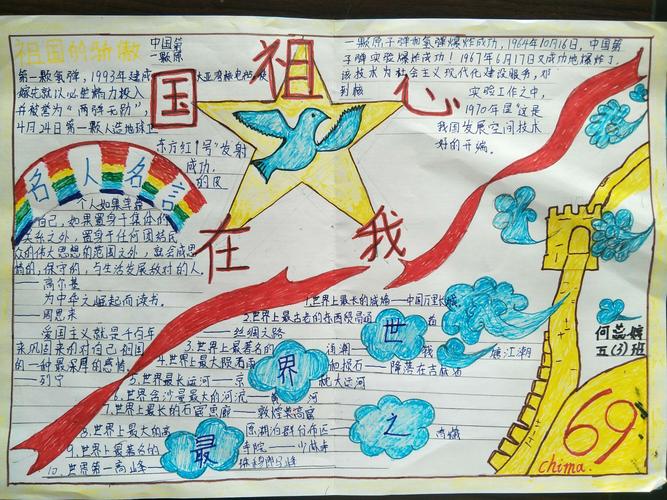 祖国的骄傲
中国第
一颗原
第一颗氢弹，1993年建成
大亚湾核电站
并被誉为“两弹元勋”，
4月24日第一颗人造地球卫
东方红1号"发射
成功，
的良
一颗原子弹和氢弹爆炸成功，1964年10月16日，中国第
子弹实验爆炸成功！1967年6月17日又成功地爆炸了
该技术为社会主义现代化建设服务，邓
到核
实验工作之中，
1970年星"这是
我国发展空间技术
好的开端。
祖
国
心
在
我
名人名言
个人如果单靠
自己，如果置身于集体的
关系之外，置身于任何团结民
众的伟大思想的范围之外，就会成怠
惰的，保守的，与生活发展敌对的人。
——高尔基
为中华之崛起而读书。
——周恩来
爱国主义就是千百年
来巩固来的对自己祖国
的一种最深厚的感情。
——列宁
世
界
之
最
1.世界上最长的城墙——中国万里长城
2.世界上最古老的东西贸易道
——丝绸之路
3.世界上最著名的
涌潮
钱
塘江潮
4.世界上最大陨石雨
陨石——降落在吉林省
5.世界最长运河——京
杭大运河
6.世界含沙量最大的河流
7.世界上最长的石窟画廊——敦煌莫高窟
8.世界上最大的高
原湖泊群分布区
西藏
9.世界上最著名的
寺院——少林寺
10.世界第一高峰
珠穆朗玛峰
五(3)班
69
china.